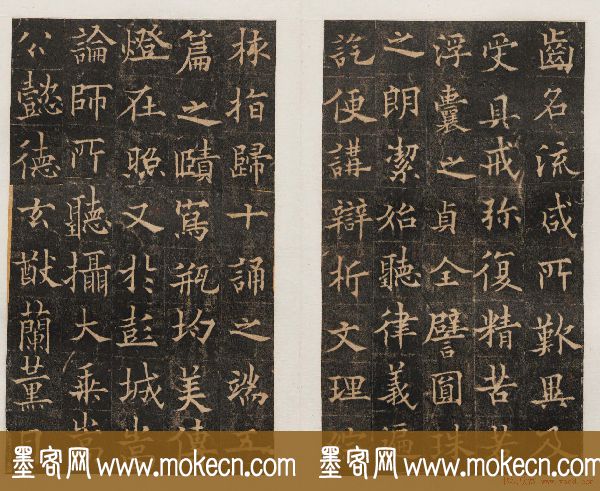 齒名流咸所歎異及
受具戒弥復精苦
浮囊之貞全譬圓珠
之朗潔始聽律義遍
訖便講辯析文理
核指歸十誦之端五
篇之賾寫瓶均美傳
燈在照又於彭城嵩
論師所聽攝大乘嵩
公懿德玄猷蘭薰
墨客网 www.mokecn.com
墨客网 www.mokecn.com